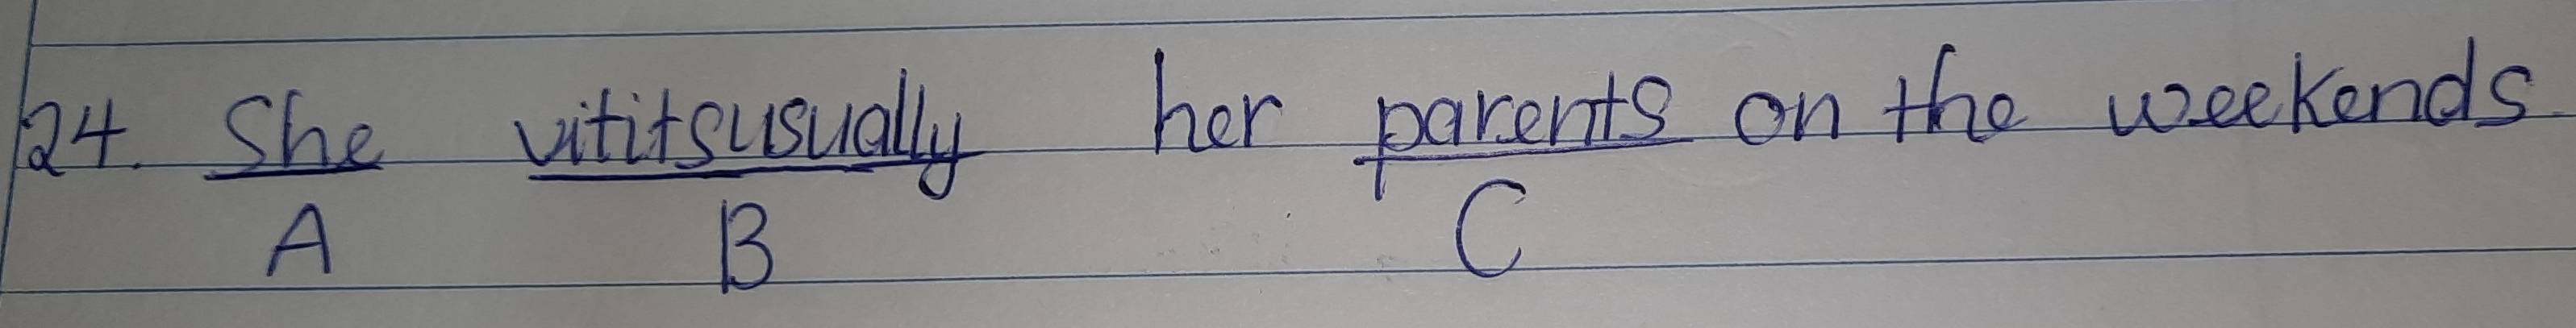 24. She vititsusually her parents on the weekends
A B C